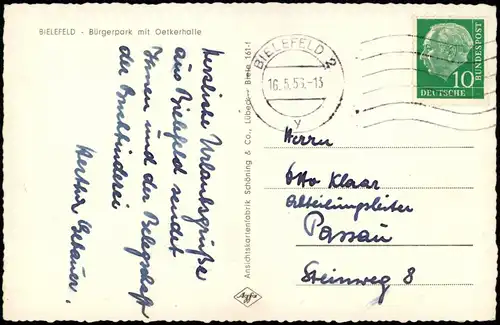 BIELEFELD - Bürgerpark mit Oetkerhalle
Herzliche Urlaubsgrüße
aus Bielefeld sendet
Ihnen und der Belegschaft
der Buchbinderei
Arthur Gebauer.
Ansichtskartenfabrik Schöning & Co., Lübeck - Biele 161-f
Agfa
BIELEFELD 2
16.5.56.-13
y
10
DEUTSCHE
BUNDESPOST
Herrn
Otto Klaar
Abteilungsleiter
Passau
Steinweg 8